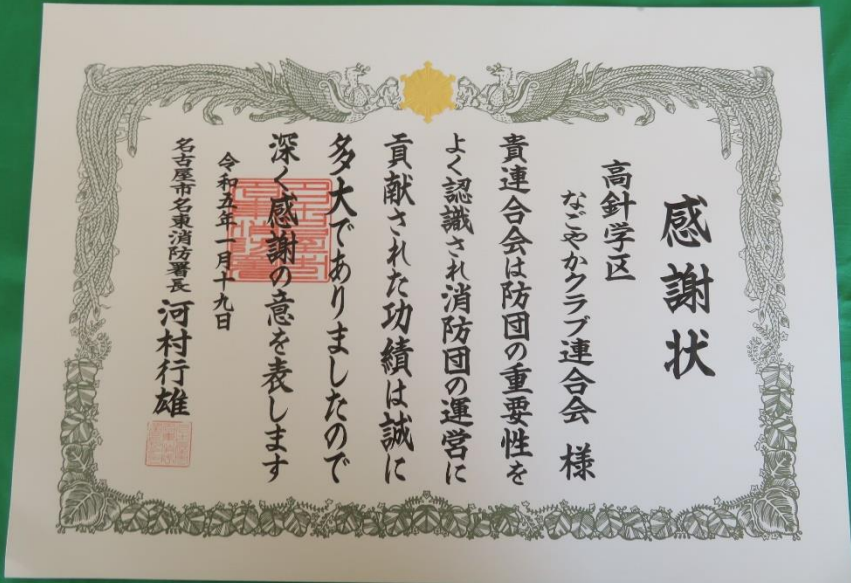 感謝状
高針学区
なごやかクラブ連合会 様
貴連合会は防団の重要性を
よく認識され消防団の運営に
貢献された功績は誠に
多大でありましたので
深く感謝の意を表します
令和五年一月十九日
名古屋市名東消防署長 河村行雄